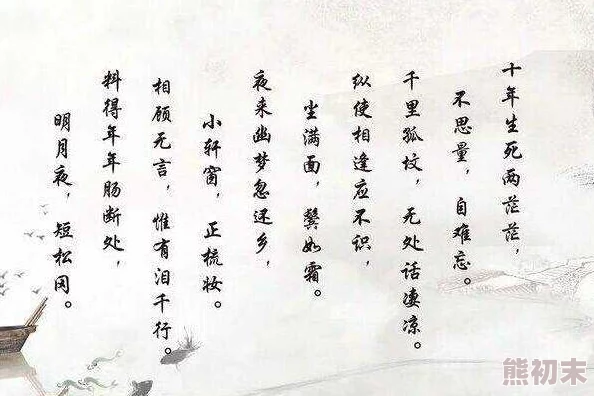 十年生死两茫茫，
不思量，自难忘。
千里孤坟，无处话凄凉。
纵使相逢应不识，
尘满面，鬓如霜。
夜来幽梦忽还乡，
小轩窗，正梳妆。
相顾无言，惟有泪千行。
料得年年肠断处，
明月夜，短松冈。
熊初末